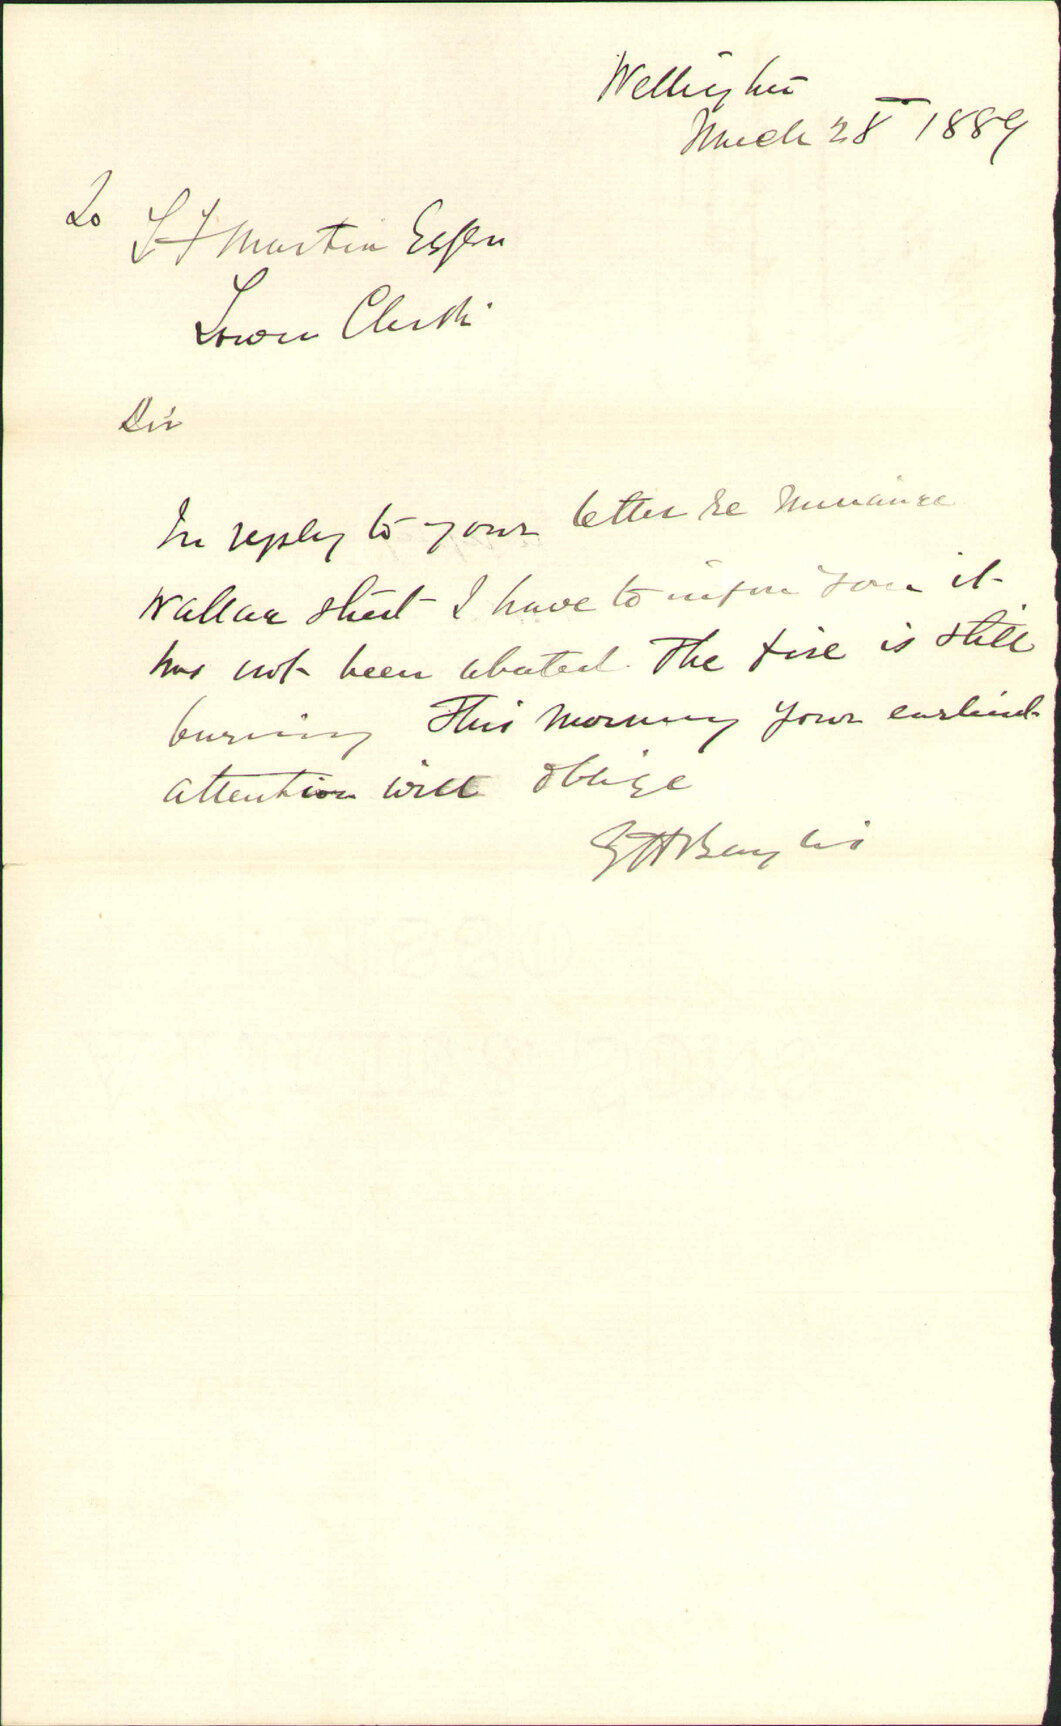 Wellington
March 28th 1889
To
F Martin Esqre
Town Clerk
Sir
In reply to your letter re Nuisance
Wallace Street I have to inform you it
has not been abated. The fire is still
burning This Morning Your earliest
attention will oblige
G H Baylis